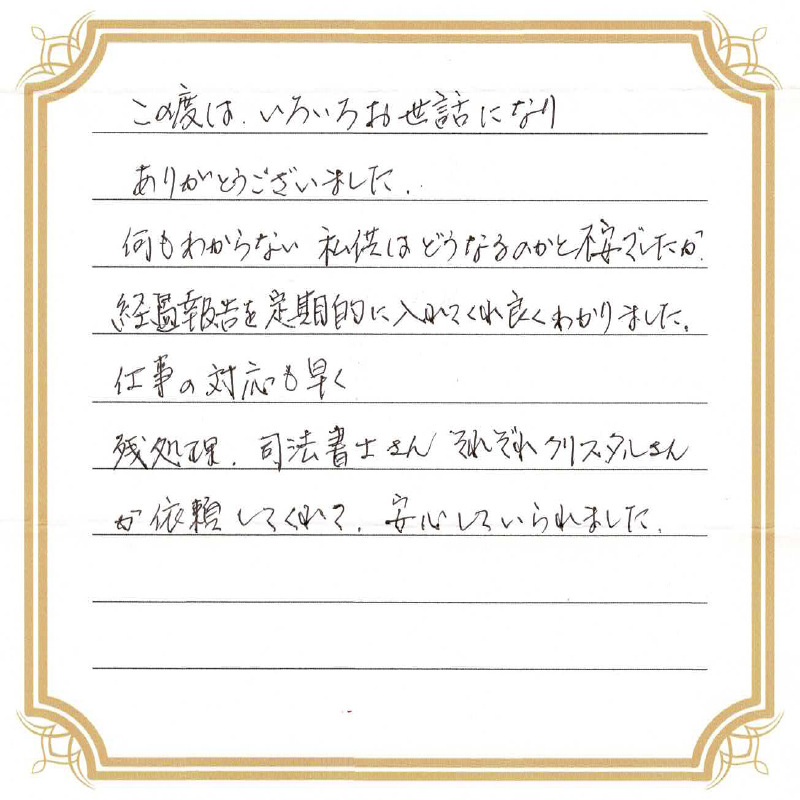 この度は、いろいろお世話になり
ありがとうございました。
何もわからない 私供はどうなるのかと不安でしたが、
経過報告を定期的に入れてくれ良くわかりました。
仕事の対応も早く
残処理、司法書士さん それぞれクリスタルさん
が依頼してくれて、安心していられました。